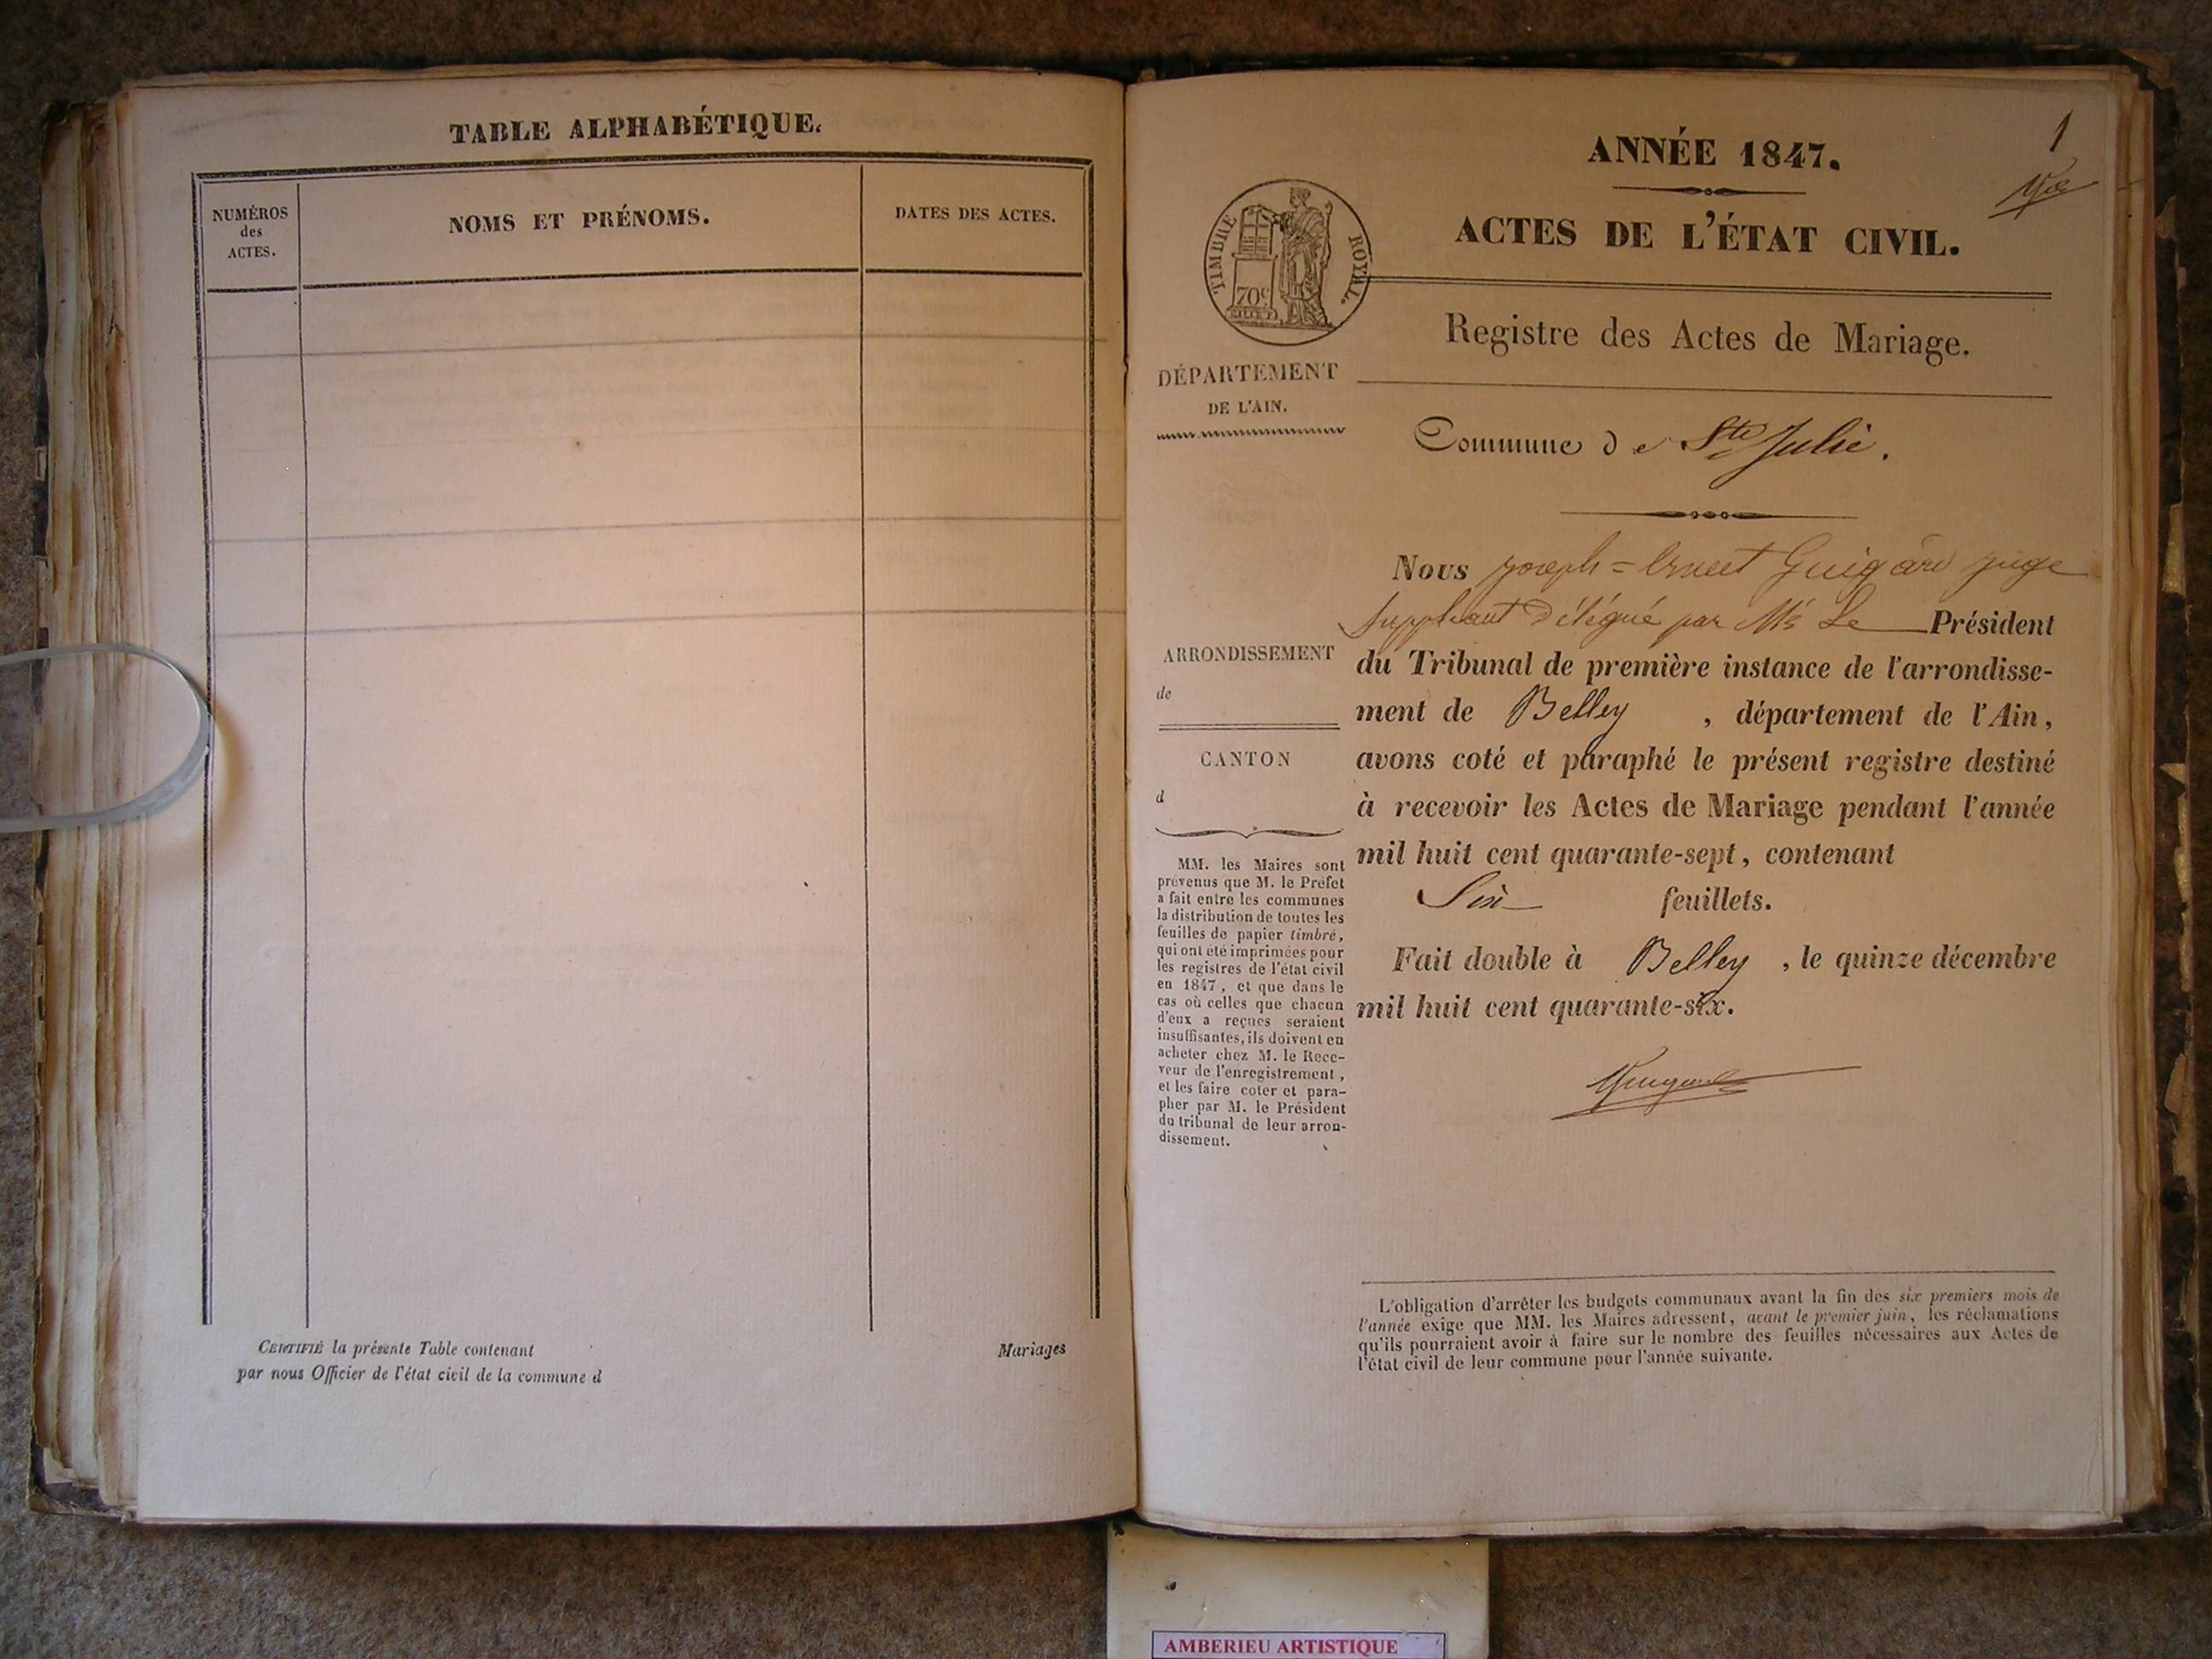 TABLE ALPHABÉTIQUE.
NUMÉROS
des
ACTES.
NOMS ET PRÉNOMS.
DATES DES ACTES.
CERTIFIÉ la présente Table contenant Mariages
par nous Officier de l'état civil de la commune d
1
ANNÉE 1847.
ACTES DE L'ÉTAT CIVIL.
TIMBRE ROYAL.
70c
Registre des Actes de Mariage.
DÉPARTEMENT
DE L'AIN.
Commune de Ste Julie.
ARRONDISSEMENT
de
CANTON
d
MM. les Maires sont
prévenus que M. le Préfet
a fait entre les communes
la distribution de toutes les
feuilles de papier timbré,
qui ont été imprimées pour
les registres de l'état civil
en 1847, et que dans le
cas où celles que chacun
d'eux a reçues seraient
insuffisantes, ils doivent en
acheter chez M. le Rece-
veur de l'enregistrement,
et les faire coter et para-
pher par M. le Président
du tribunal de leur arron-
dissement.
Nous Joseph=Ernest Guigard juge
Suppléant Délégué par Mr Le Président
du Tribunal de première instance de l'arrondisse-
ment de Belley, département de l'Ain,
avons coté et paraphé le présent registre destiné
à recevoir les Actes de Mariage pendant l'année
mil huit cent quarante-sept, contenant
Six feuillets.
Fait double à Belley, le quinze décembre
mil huit cent quarante-six.
L'obligation d'arrêter les budgets communaux avant la fin des six premiers mois de
l'année exige que MM. les Maires adressent, avant le premier juin, les réclamations
qu'ils pourraient avoir à faire sur le nombre des feuilles nécessaires aux Actes de
l'état civil de leur commune pour l'année suivante.
AMBERIEU ARTISTIQUE